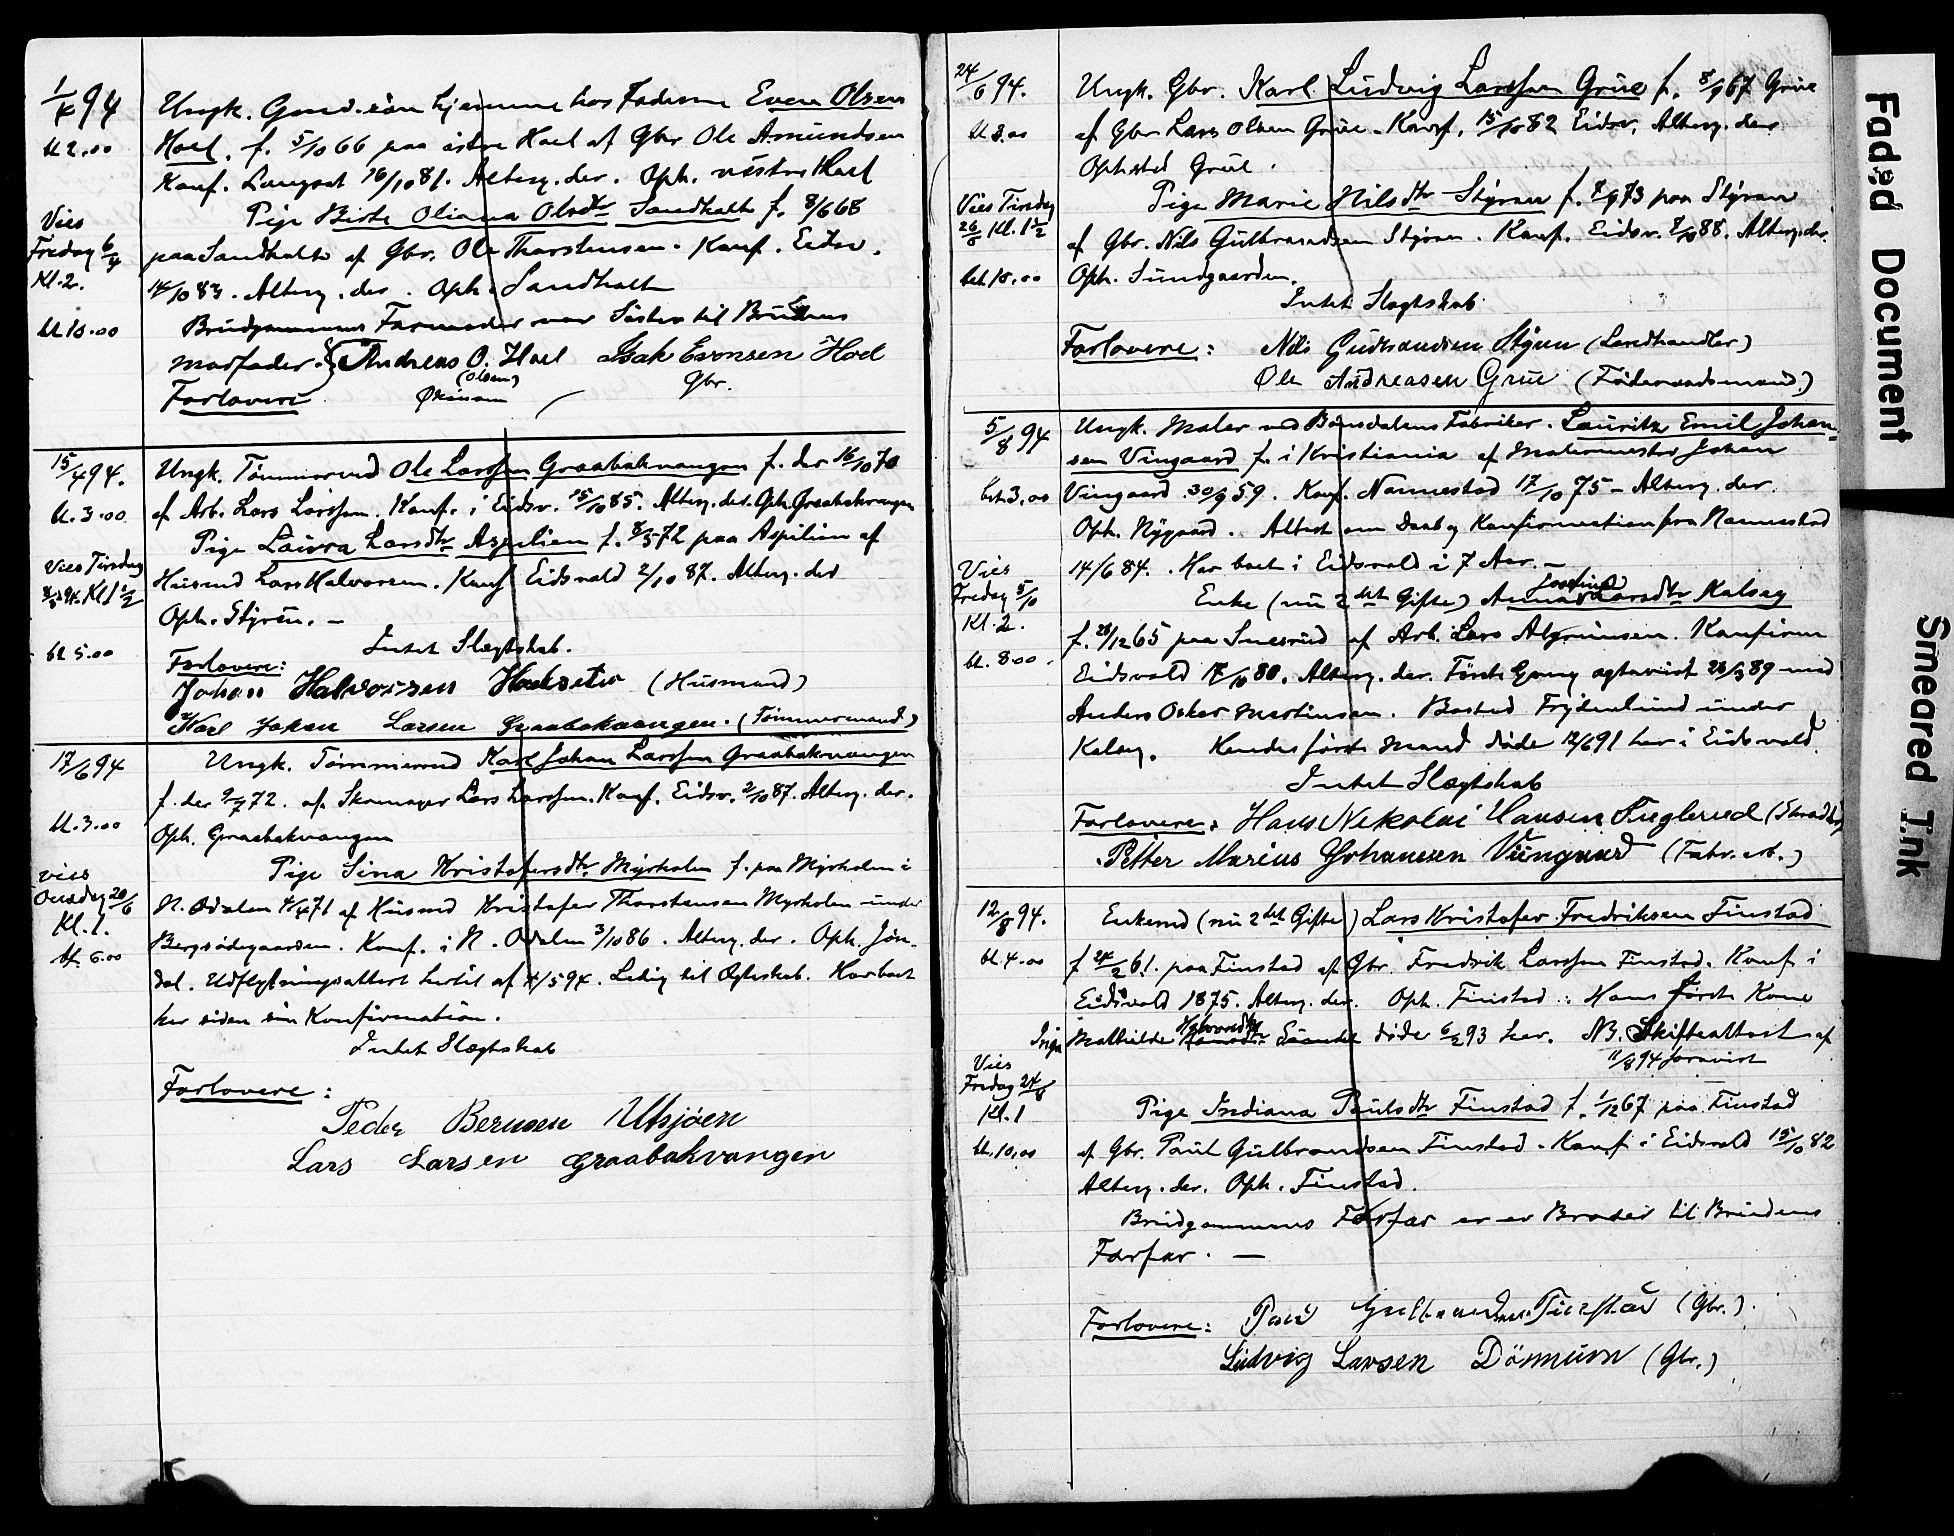 1/4 94
Kl 2.00
Ungk. Gmd.søn hjemme hos Faderen Even Olsen
Hoel. f. 5/10 66 paa østre Hoel af Gbr Ole Amundsen
Konf. Langset 16/10 81. Alterg. der. Oph. vestre Hoel
Vies
Fredag 6/4
Kl. 2.
bt 10.00
Pige Birte Oliana Olsdtr Sandholt f. 8/6 68
paa Sandholt af Gbr. Ole Thorstensen. Konf. Eidsv.
14/10 83. Alterg. der. Oph. Sandholt
Brudgommens Farmoder var Søster til Brudens
morfader. Andreas O. Hoel Isak Evensen Hoel
(Olsen) Gbr.
Forlovere
15/4 94.
bt. 3.00
Ungk. Tømmermd Ole Larssen Graabakvangen f. der 16/10 70
af Arb. Lars Larssen. Konf. i Eidsv. 15/10 85. Alterg. der. Oph. Graabakvangen
Pige Laura Larsdtr Aspelien f. 8/5 72 paa Aspelien af
Vies Tirsdag
8/5 94 Kl 1 1/2
Husmd Lars Halvorsen. Konf Eidsvold 2/10 87. Alterg. der
Oph. Styren. –
bt 5.00
Intet Slægtskab.
Forlovere:
Johan Halvorsen Hokseter (Husmand)
Karl Johan Larsen Graabakvangen. (Tømmermand.)
17/6 94
bt. 3.00
Ungk. Tømmermd Karl Johan Larssen Graabakvangen
f. der 9/7 72. af Skomager Lars Larssen. Konf. Eidsv. 2/10 87. Alterg. der.
Oph. Graabakvangen
vies
Onsdag 20/6
Kl. 1.
bt. 6.00
Pige Sina Kristofersdtr Myrholen f. paa Myrholen i
N. Odalen 4/4 71 af Husmd Kristofer Thorstensen Myrholen under
Bergsødegaarden. Konf. i N. Odalen 3/10 86. Alterg. der. Oph. Jøn-
dal. Udflytningsattest hertil af 4/5 94. Ledig til Ægteskab. Har boet
her siden sin Konfirmation.
Intet Slægtskab
Forlovere:
Peder Bernsen Utsjøen
Lars Larsen Graabakvangen
24/6 94.
bt 3.00
Ungk. Gbr. Karl Ludvig Larssen Grue f. 8/9 67 Grue
af Gbr Lars Olsen Grue. Konf. 15/10 82 Eidsv. Alterg. der
Opholdsted Grue.
Vies Tirsdag
26/6 Kl. 1 1/2
bet 10.00
Pige Marie Nilsdtr Styren f. 7/9 73 paa Styren
af Gbr. Nils Gulbrandsen Styren. Konf. Eidsv. 7/10 88. Alterg. der.
Oph. Sundgaarden.
Intet Slægtskab
Forlovere: Nils Gudbrandsen Styren (Landhandler)
Ole Andreasen Grue (Føderaadsmand.)
5/8 94
bet. 3.00
Ungk. Maler ved Bønsdalens Fabriker. Lauritz Emil Johan-
sen Vungaard f. i Kristiania af Malermester Johan
Vingaard 30/9 59. Konf. Nannestad 17/10 75 – Alterg. der.
Oph. Nygaard. Attest om Daab og Konfirmation fra Nannestad
14/6 84. Har boet i Eidsvold i 7 Aar. –
Vies
Fredag 5/10
Kl. 2.
bt. 8.00.
Josefine
Enke (nu 2det Gifte) Anna Larsdtr Kalseg
f. 28/12 65 paa Snesrud af Arb. Lars Algrimsen. Konfirm
Eidsvold 17/10 80. Alterg. der. Første Gang ægteviet 23/3 89 med
Anders Oskar Martinsen. Bosted Frydenlund under
Kalseg. Hendes første Mand døde 12/6 91 her i Eidsvold.
Intet Slægtskab
Forlovere: Hans Nikolai Hansen
Petter Marius Johansen Vungaard (Fabr. arb.)
12/8 94.
bt. 4.00
Enkemd (nu 2det Gifte) Lars Kristofer Fredriksen Finstad
f 24/2 61. paa Finstad af Gbr. Fredrik Larssen Finstad. Konf i
Eidsvold 1875. Alterg. der. Oph. Finstad: Hans første Kone
Halvorsdtr
Inga Mathilde døde 6/2 93 her. NB. Skifteattest af
11/8 94 forevist
Vies
Fredag 24/8
Kl. 1
bt. 10.00
Pige Indiana Paulsdtr Finstad f. 1/12 67 paa Finstad
af Gbr. Paul Gulbrandsen Finstad. Konf i Eidsvold 15/10 82
Alterg. der. Oph. Finstad.
Brudgommens Farfar er en Broder til Brudens
Farfar. –
Forlovere: Paul Gulbrandsen Finstad (Gbr.).
Ludvig Larsen Dønnum (Gbr.)
Faded Document
Smeared Ink